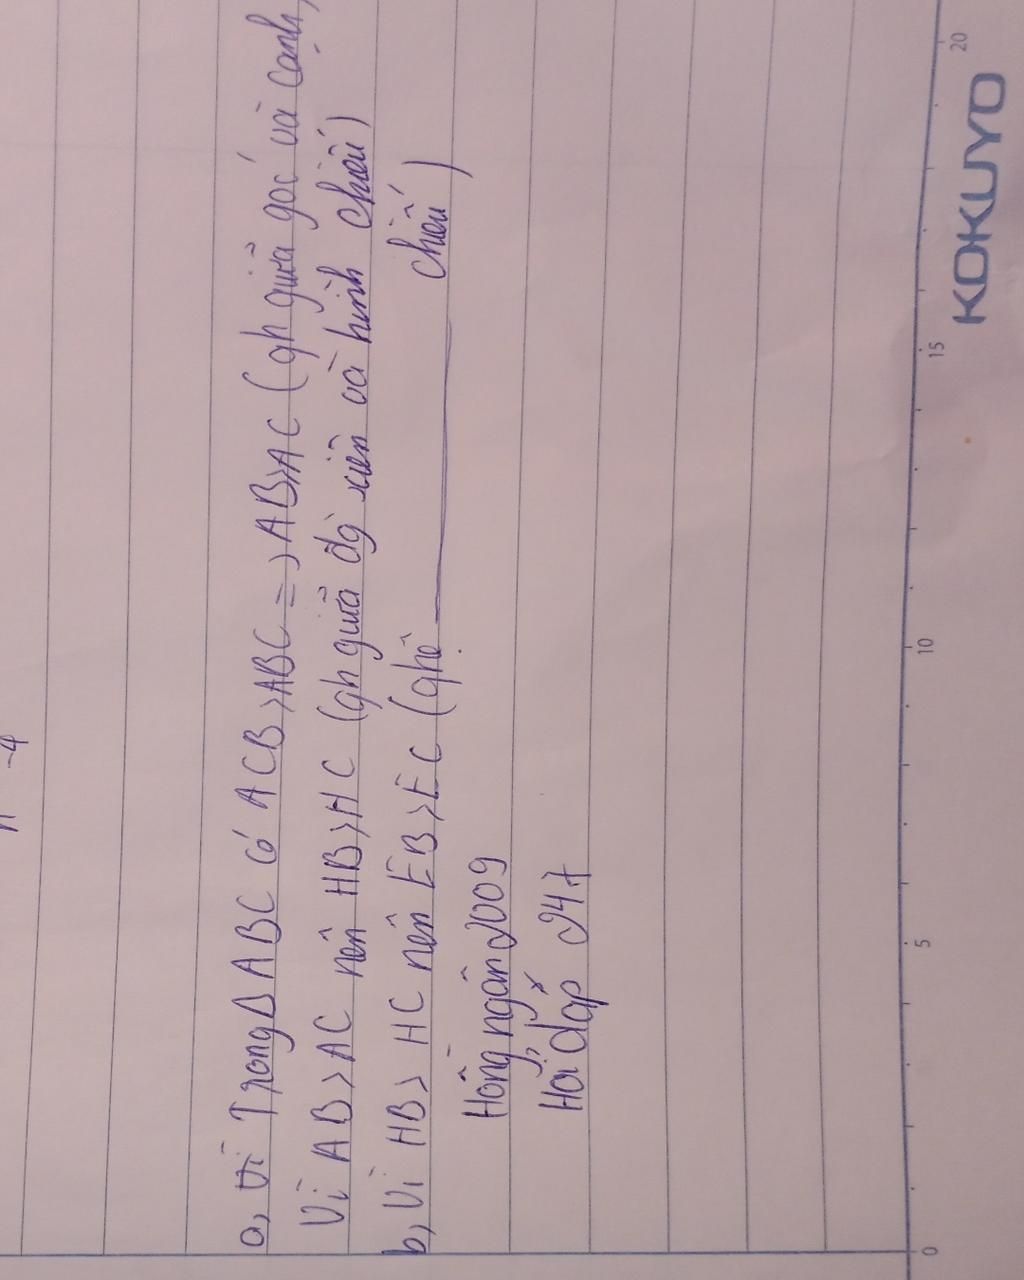 -4
a, Vì Trong Δ ABC có ACB > ABC => AB > AC (qh giữa góc và cạnh)
Vì AB > AC nên HB > HC (qh giữa đg xiên và hình chiếu)
b, Vì HB > HC nên EB > EC (qhệ ——— chiếu)
Hồng ngân 2009
Hỏi đáp 247
0 5 10 15 20
KOKUYO